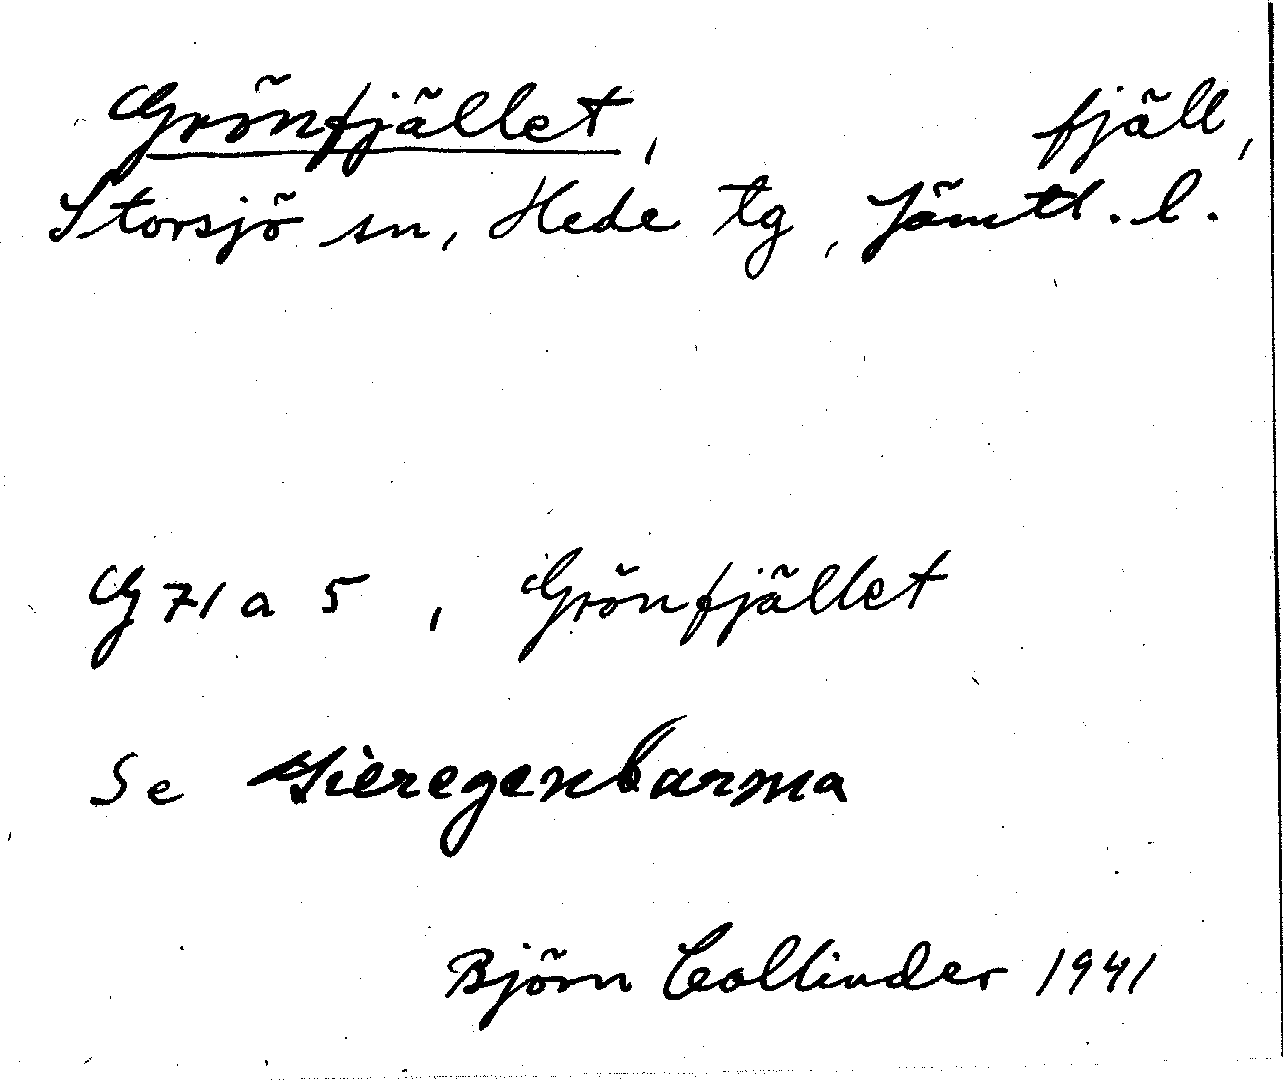 Grönfjället, fjäll,
Storsjö sn, Hede tg, Jämtl. l.
G 71 a 5, Grönfjället
Se
Björn Collinder 1941